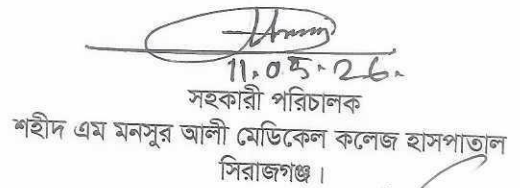 11.05.26.
সহকারী পরিচালক
শহীদ এম মনসুর আলী মেডিকেল কলেজ হাসপাতাল
সিরাজগঞ্জ।